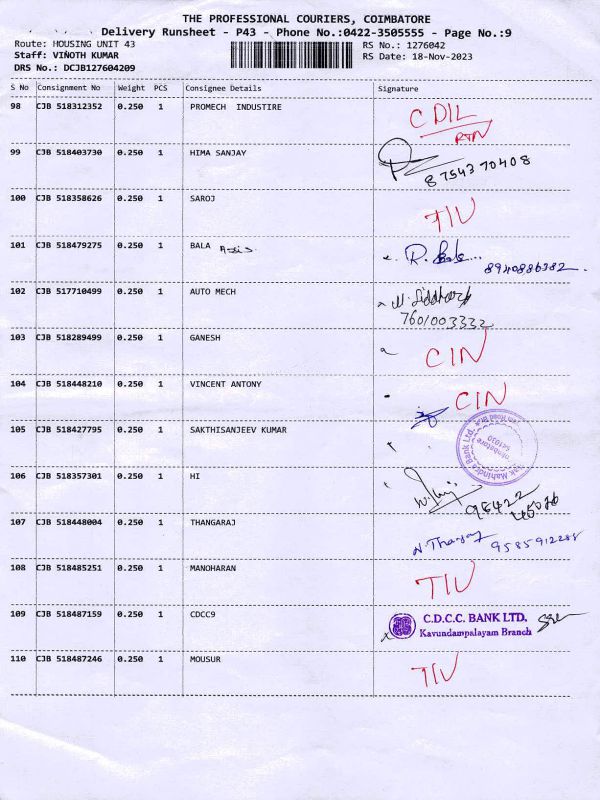 THE PROFESSIONAL COURIERS, COIMBATORE
Delivery Runsheet - P43 - Phone No.:0422-3505555 - Page No.:9
Route: HOUSING UNIT 43 RS No.: 1276042
Staff: VINOTH KUMAR RS Date: 18-Nov-2023
DRS No.: DCJB127604209
S No Consignment No Weight PCS Consignee Details Signature
98 CJB 518312352 0.250 1 PROMECH INDUSTIRE CDIL
RTN
99 CJB 518403730 0.250 1 HIMA SANJAY
8754370408
100 CJB 518358626 0.250 1 SAROJ TIU
101 CJB 518479275 0.250 1 BALA R.
8940886382
102 CJB 517710499 0.250 1 AUTO MECH
7601003332
103 CJB 518289499 0.250 1 GANESH CIN
104 CJB 518448210 0.250 1 VINCENT ANTONY CIN
105 CJB 518427795 0.250 1 SAKTHISANJEEV KUMAR
Mahindra Bank Ltd.
641030
106 CJB 518357301 0.250 1 HI
107 CJB 518448004 0.250 1 THANGARAJ
108 CJB 518485251 0.250 1 MANOHARAN TIU
109 CJB 518487159 0.250 1 CDCC9 C.D.C.C. BANK LTD.
Kavundampalayam Branch
110 CJB 518487246 0.250 1 MOUSUR TIU